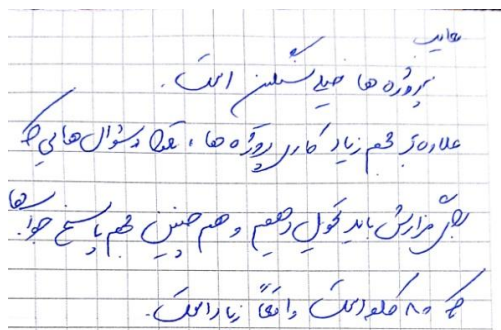 معایب
پروژه ها خیلی سنگین است.
علاوه بر حجم زیاد کاری پروژه ها، تعداد سوال هایی که
برای گزارش باید تحویل دهیم و هم چنین حجم پاسخ جواب ها
که ۸۰ است واقعاً زیاد است.